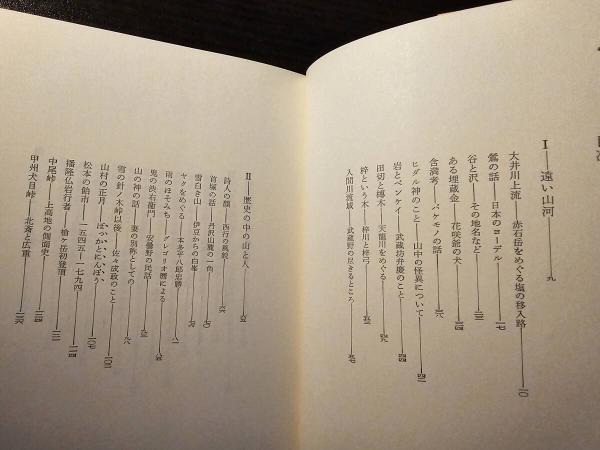 目次
I——遠い山河——九
大井川上流——赤石岳をめぐる塩の移入路——一〇
鶯の話——日本のヨーデル——一四
谷と沢——その地名など——
ある埋蔵金——花咲爺の犬——
含満考——バケモノの話——
ヒダル神のこと——山中の怪異について——四一
岩とベンケイ——武蔵坊弁慶のこと——四四
田切と榑木——天龍川をめぐる——四九
梓という木——梓川と梓弓——五三
入間川流域——武蔵野の尽きるところ——五七
II——歴史の中の山と人——六五
詩人の顔——西行の風貌——六六
首塚の話——丹沢山麓の一角——七〇
雪白き山——伊豆からの白峯——
ヤクをめぐる——本多平八郎忠勝——八一
雨のほそみち——グレゴリオ暦による——八五
鬼の渋右衛門——安曇野の民話——
山の神の話——妻の別称としての——
雪の針ノ木峠以後——佐々成政のこと——九八
山村の正月——ぼっかとにんぼう——一〇二
松本の飴市——一五四五—一七九四——一〇七
播隆仏岩行者——槍ケ岳初登頂——一一四
中尾峠——上高地の側面史——
甲州犬目峠——北斎と広重——